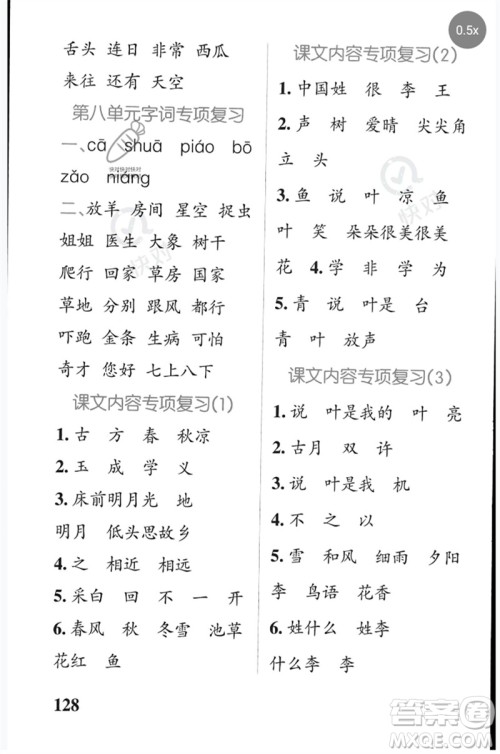 舌头 连日 非常 西瓜
来往 还有 天空
第八单元字词专项复习
一、cā shuā piáo bō
zǎo niáng
二、放羊 房间 星空 捉虫
姐姐 医生 大象 树干
爬行 回家 草房 国家
草地 分别 跟风 都行
吓跑 金条 生病 可怕
奇才 您好 七上八下
课文内容专项复习(1)
1.古 方 春 秋凉
2.玉 成 学 义
3.床前明月光 地
明月 低头思故乡
4.之 相近 相远
5.采白 回 不 一 开
6.春风 秋 冬雪 池草
花红 鱼
128
0.5x
课文内容专项复习(2)
1.中国姓 很 李 王
2.声 树 爱晴 尖尖角
立 头
3.鱼 说 叶 凉 鱼
叶 笑 朵朵很美很美
花 4.学 非 学 为
5.青 说 叶是 台
青 叶 放声
课文内容专项复习(3)
1.说 叶是我的 叶 亮
2.古月 双 许
3.说 叶是我 机
4.不 之 以
5.雪 和风 细雨 夕阳
李 鸟语 花香
6.姓什么 李 姓李
什么李 李
快对
快对快对快对
快对
答案圈
MXQE.COM